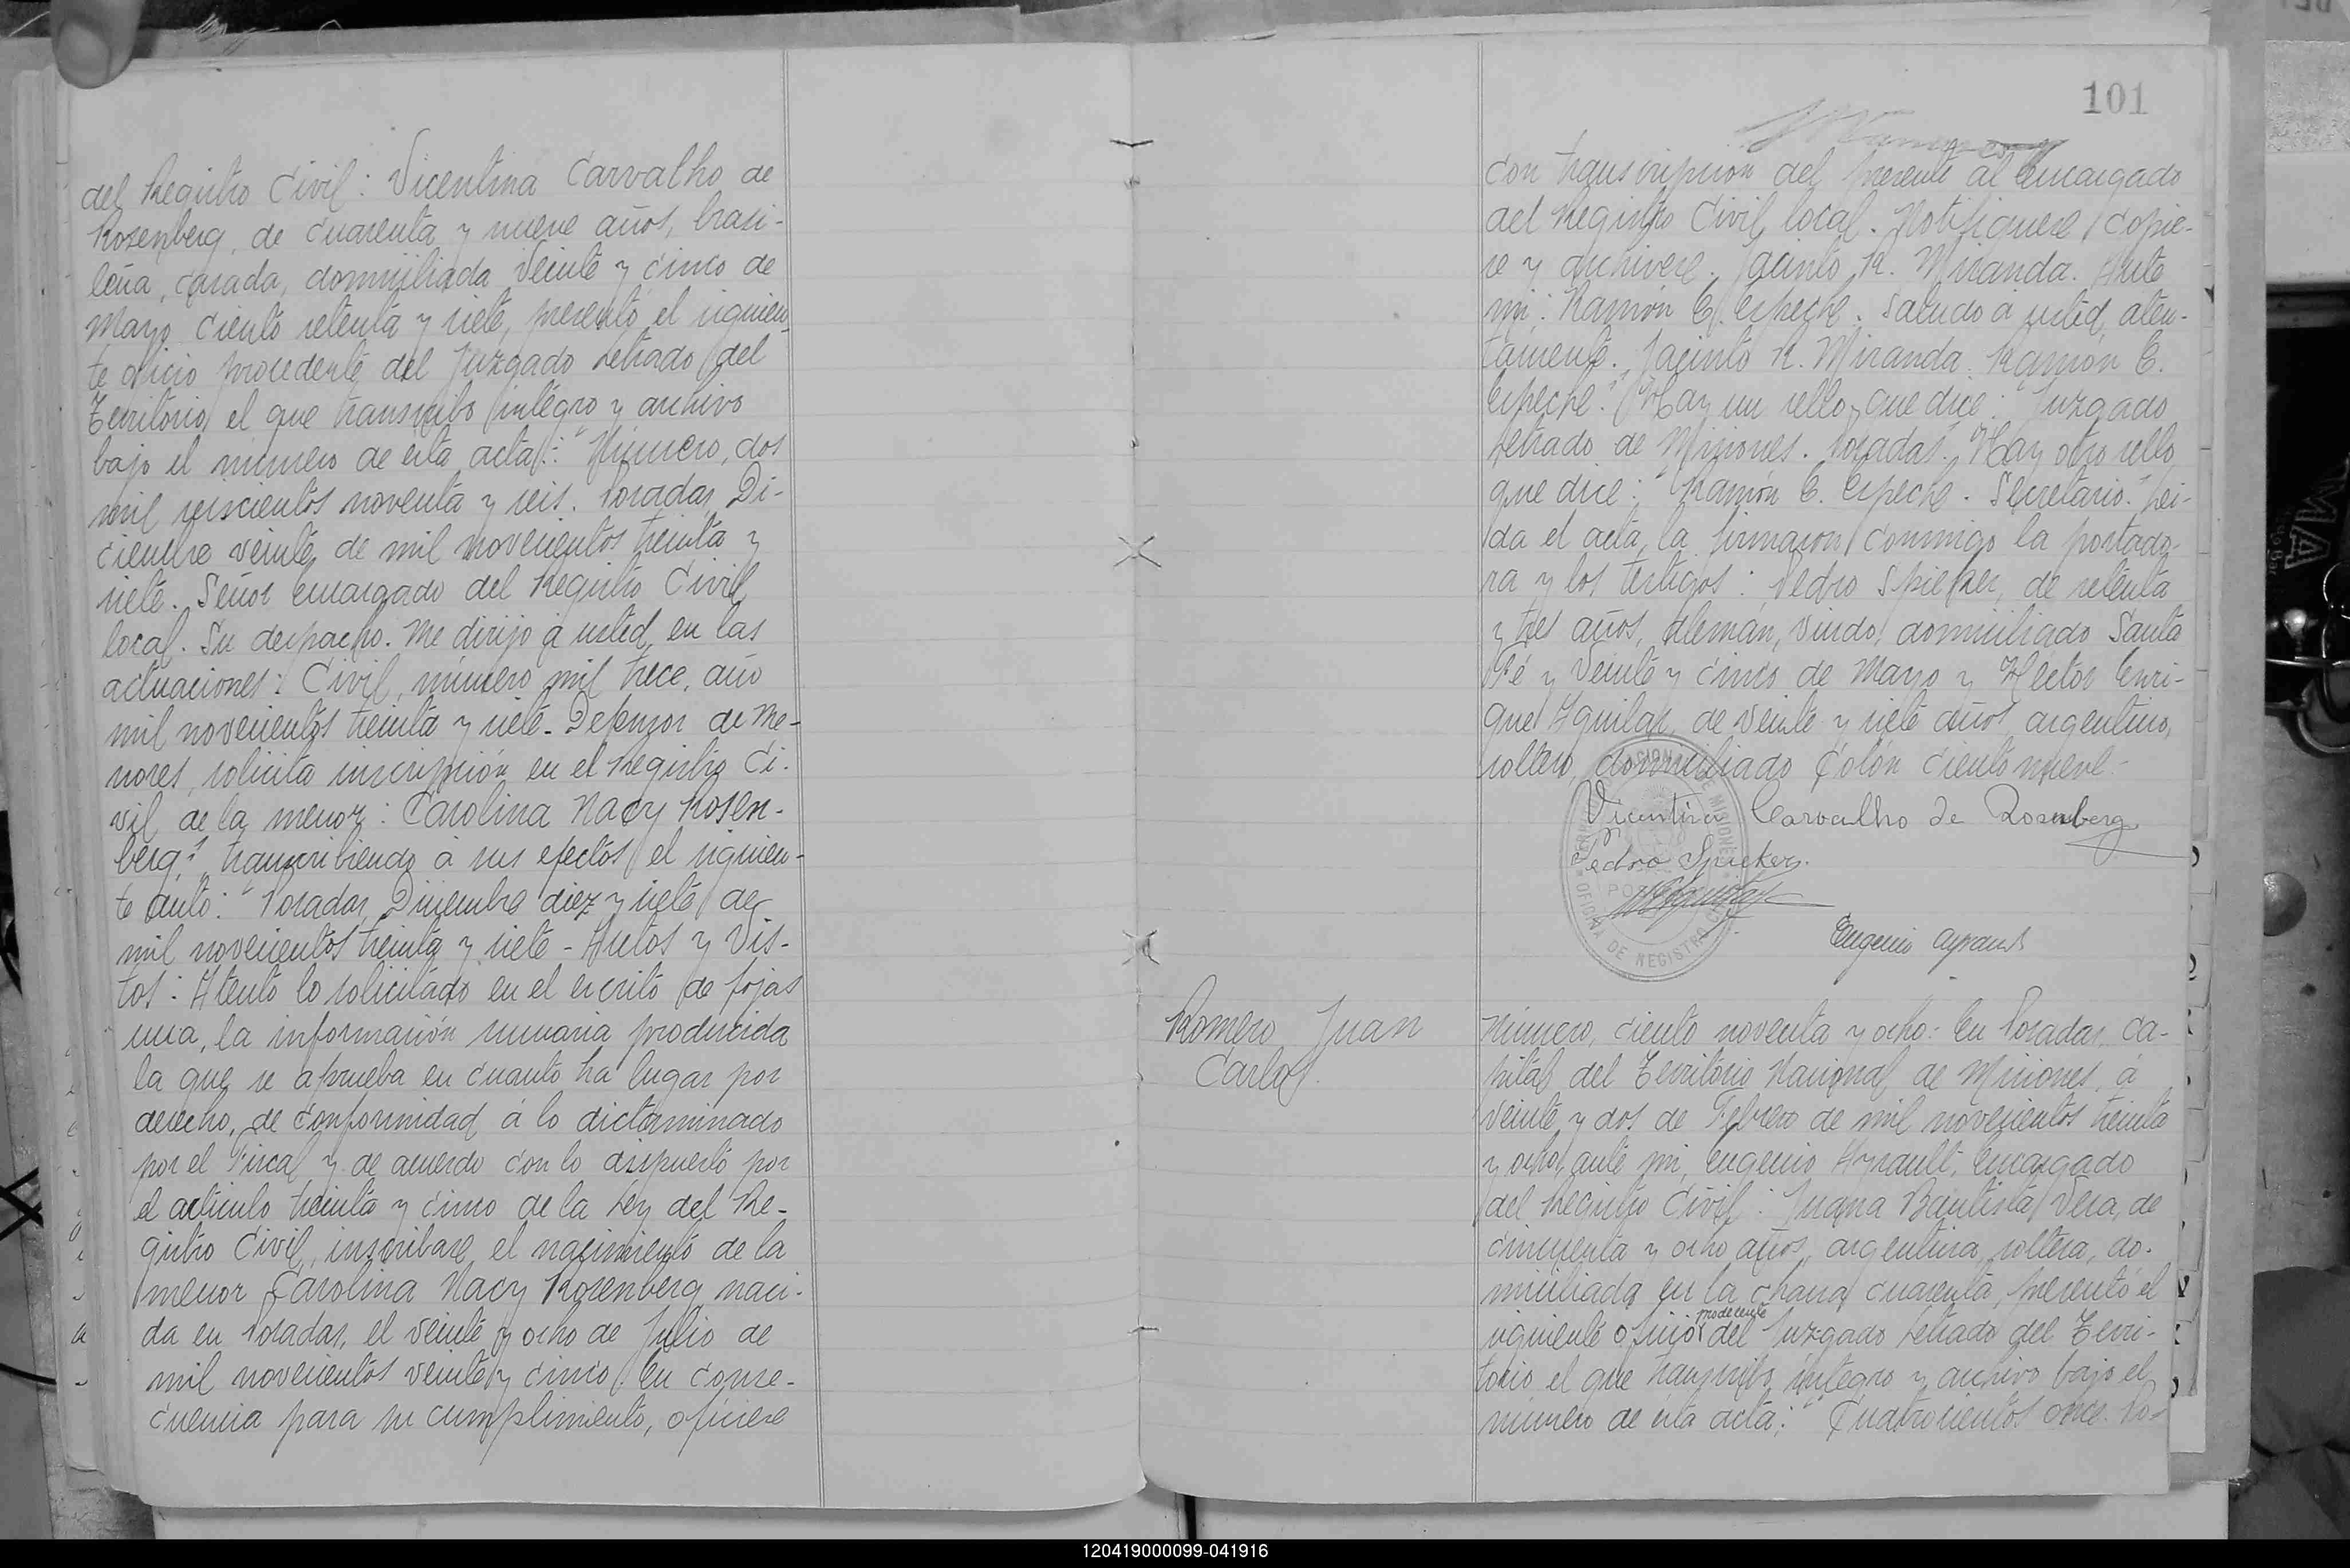 del Registro Civil: Vicentina Carvalho de
Rosenberg, de cuarenta y nueve años, brasi-
leña, casada, domiciliada Veinte y cinco de
Mayo ciento setenta y siete, presentó el siguien-
te oficio procedente del Juzgado Letrado del
Territorio, el que transcribo íntegro y archivo
bajo el número de esta acta: "Número, dos
mil seiscientos noventa y seis. Posadas, Di-
ciembre veinte, de mil novecientos treinta y
siete. Señor encargado del Registro Civil
local. Su despacho. Me dirijo á usted, en las
actuaciones: Civil, número mil trece, año
mil novecientos treinta y siete - Defensor de Me-
nores, solicita inscripción en el Registro Ci-
vil de la menor: Carolina Nacy Rosen-
berg," transcribiendo á sus efectos, el siguien-
te auto: "Posadas, Diciembre diez y siete de
mil novecientos treinta y siete - Autos y Vis-
tos: Atento lo solicitado en el escrito de fojas
una, la información sumaria producida
la que se aprueba en cuanto ha lugar por
derecho, de conformidad á lo dictaminado
por el Fiscal y de acuerdo con lo dispuesto por
el artículo treinta y cinco de la Ley del Re-
gistro Civil, inscribase, el nacimiento de la
menor Carolina Nacy Rosenberg naci-
da en Posadas, el veinte y ocho de Julio de
mil novecientos veinte y cinco. En conse-
cuencia para su cumplimiento, ofíciese
101
con transcripción del presente al Encargado
del Registro Civil, local. Notifíquese, cópie-
se y archívese. Jacinto R. Miranda. Ante
mi: Ramón C. Espeche. Saludo á usted, aten-
tamente. Jacinto R. Miranda. Ramón C.
Espeche." Hay un sello que dice: "Juzgado
Letrado de Misiones. Posadas." Hay otro sello
que dice: "Ramón C. Espeche. Secretario." Lei-
da el acta, la firmaron conmigo la portado-
ra y los testigos: Pedro Spieker, de setenta
y tres años, alemán, viudo, domiciliado Santa
Fé y Veinte y cinco de Mayo y Héctor Enri-
que Aguilar, de veinte y siete años, argentino,
soltero, domiciliado Colón ciento nueve.-
Vicentina Carvalho de Rosenberg
Pedro Spieker.
OFICINA DE REGISTRO
Eugenio Ayrault
Romero Juan
Carlos.
Número, ciento noventa y ocho: En Posadas, Ca-
pital del Territorio Nacional de Misiones, á
veinte y dos de Febrero de mil novecientos treinta
y ocho, ante mi, Eugenio Ayrault, Encargado
del Registro Civil: Juana Bautista Vera, de
cincuenta y ocho años, argentina, soltera, do-
miciliada en la chacra cuarenta, presentó el
procedente
siguiente oficio del Juzgado Letrado del Terri-
torio el que transcribo íntegro y archivo bajo el
número de esta acta: "Cuatrocientos once. Po-
120419000099-041916